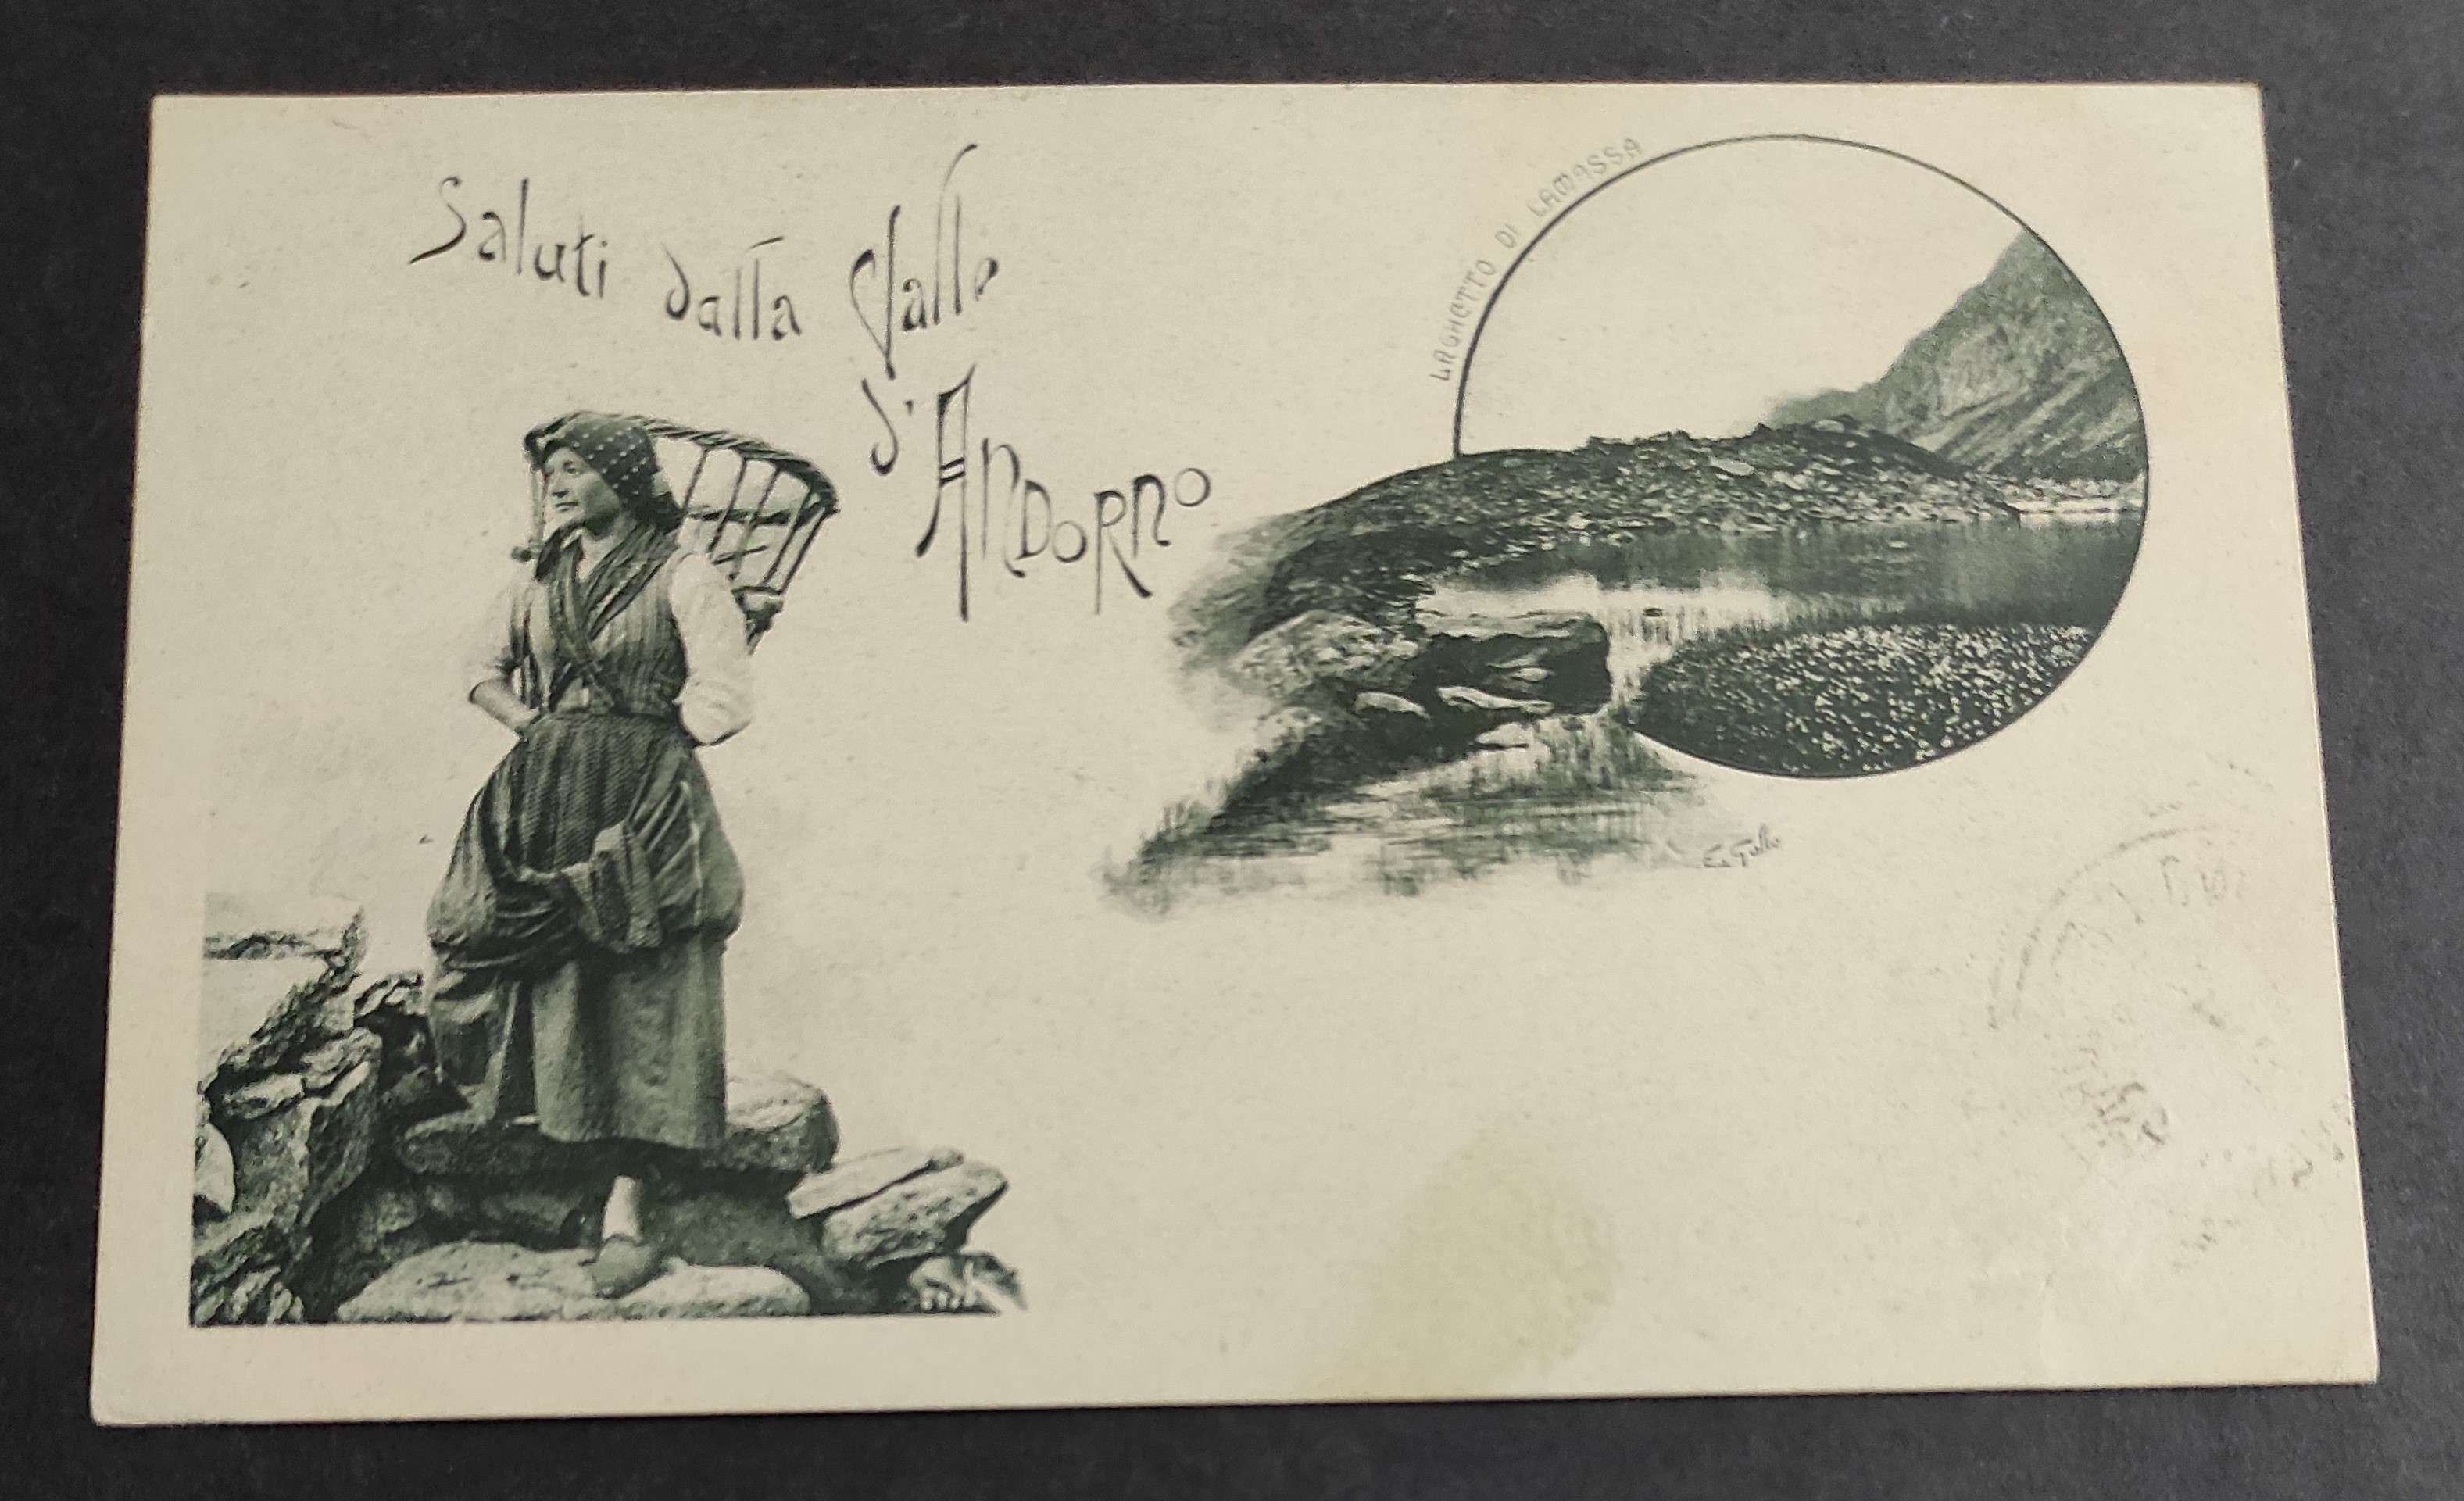 Saluti dalla Valle
d'Andorno
LAGHETTO DI LAMASSA